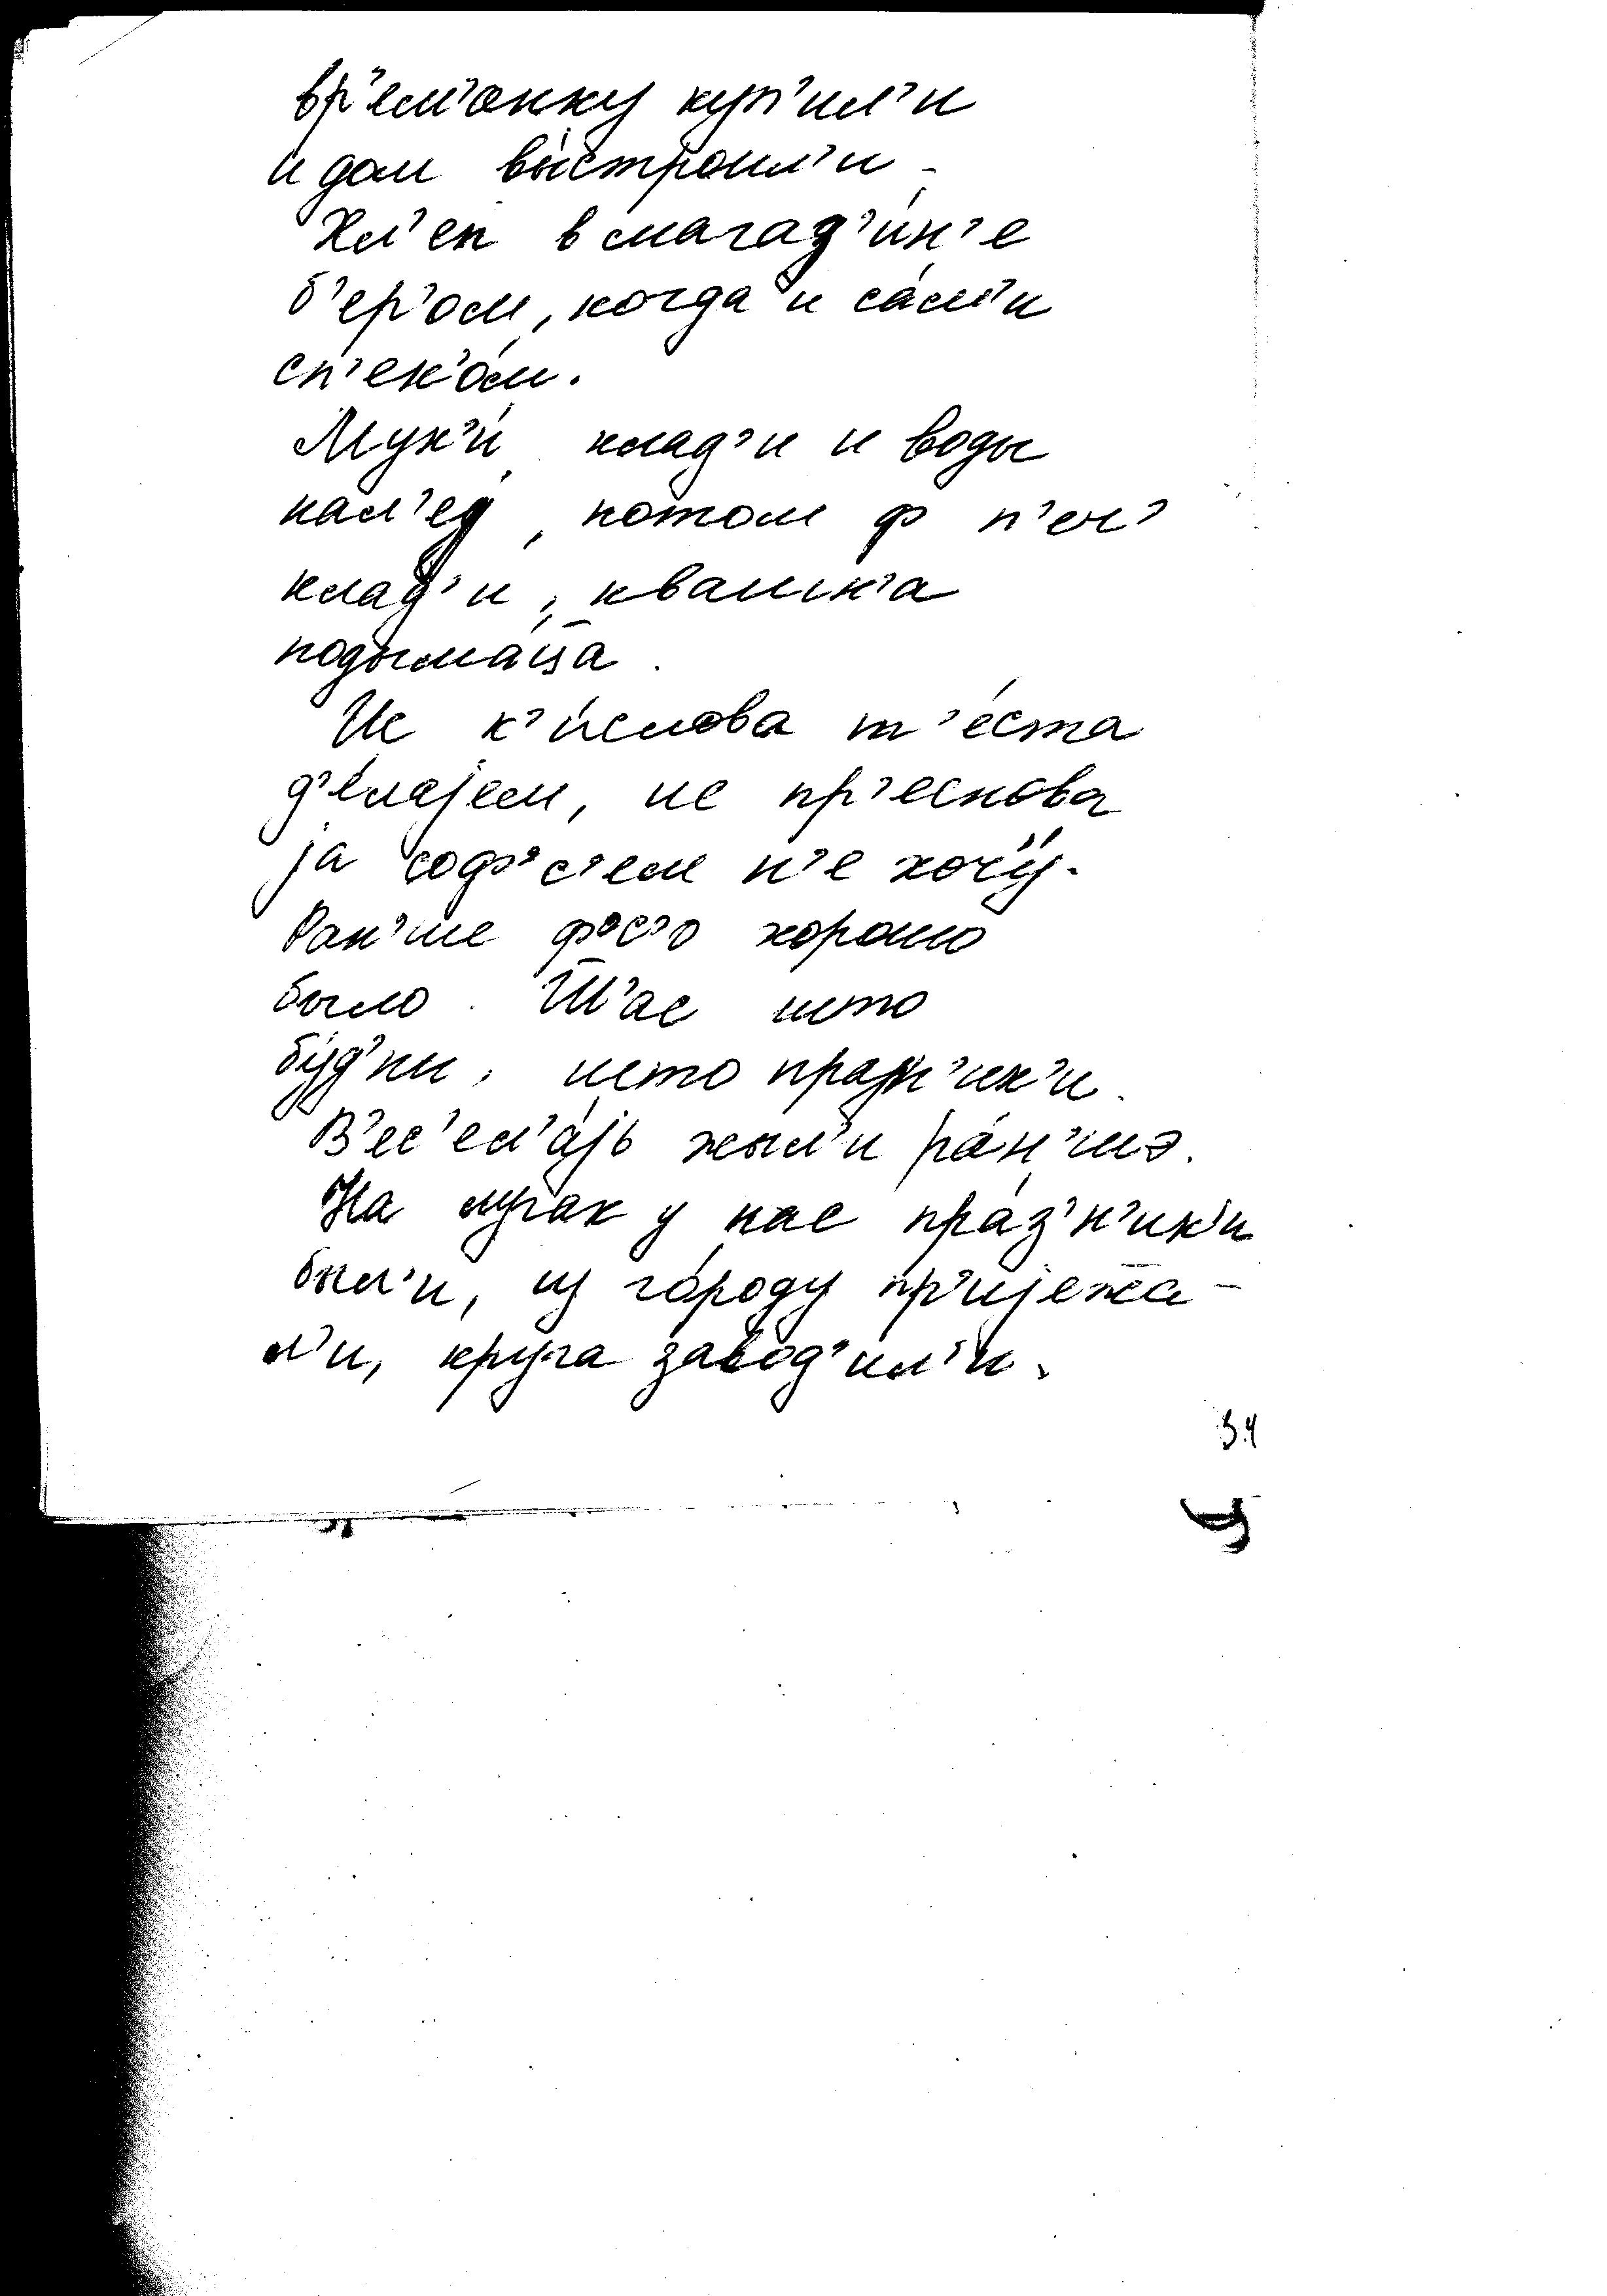 вр'ем'онку куп'ил'и
и дом вы́строил'и.
Хл'еп в магад'и́н'е
б'ер'ом, когда и са́м'и
сп'ек'о́м.
Мук'и́ клад'и и воды
нал'е́д, потом ф п'еч'
клад'и, квашн'а
подыма́ца.
Ис к'и́слова т'е́ста
д'е́лаjем, ис пр'еснова
jа соф'с'ем н'е хочу́.
Ран'ше ф'с'о хорошо
было. Ш̅'ас што
бу́д'ни, што празн'ик'и.
В'ес'ел'а́jь жыл'и ра́н'шэ.
На лугах у нас пра́з'н'ик'и
был'и, из го́роду пр'иjежа-
л'и, круга завод'ил'и.
34